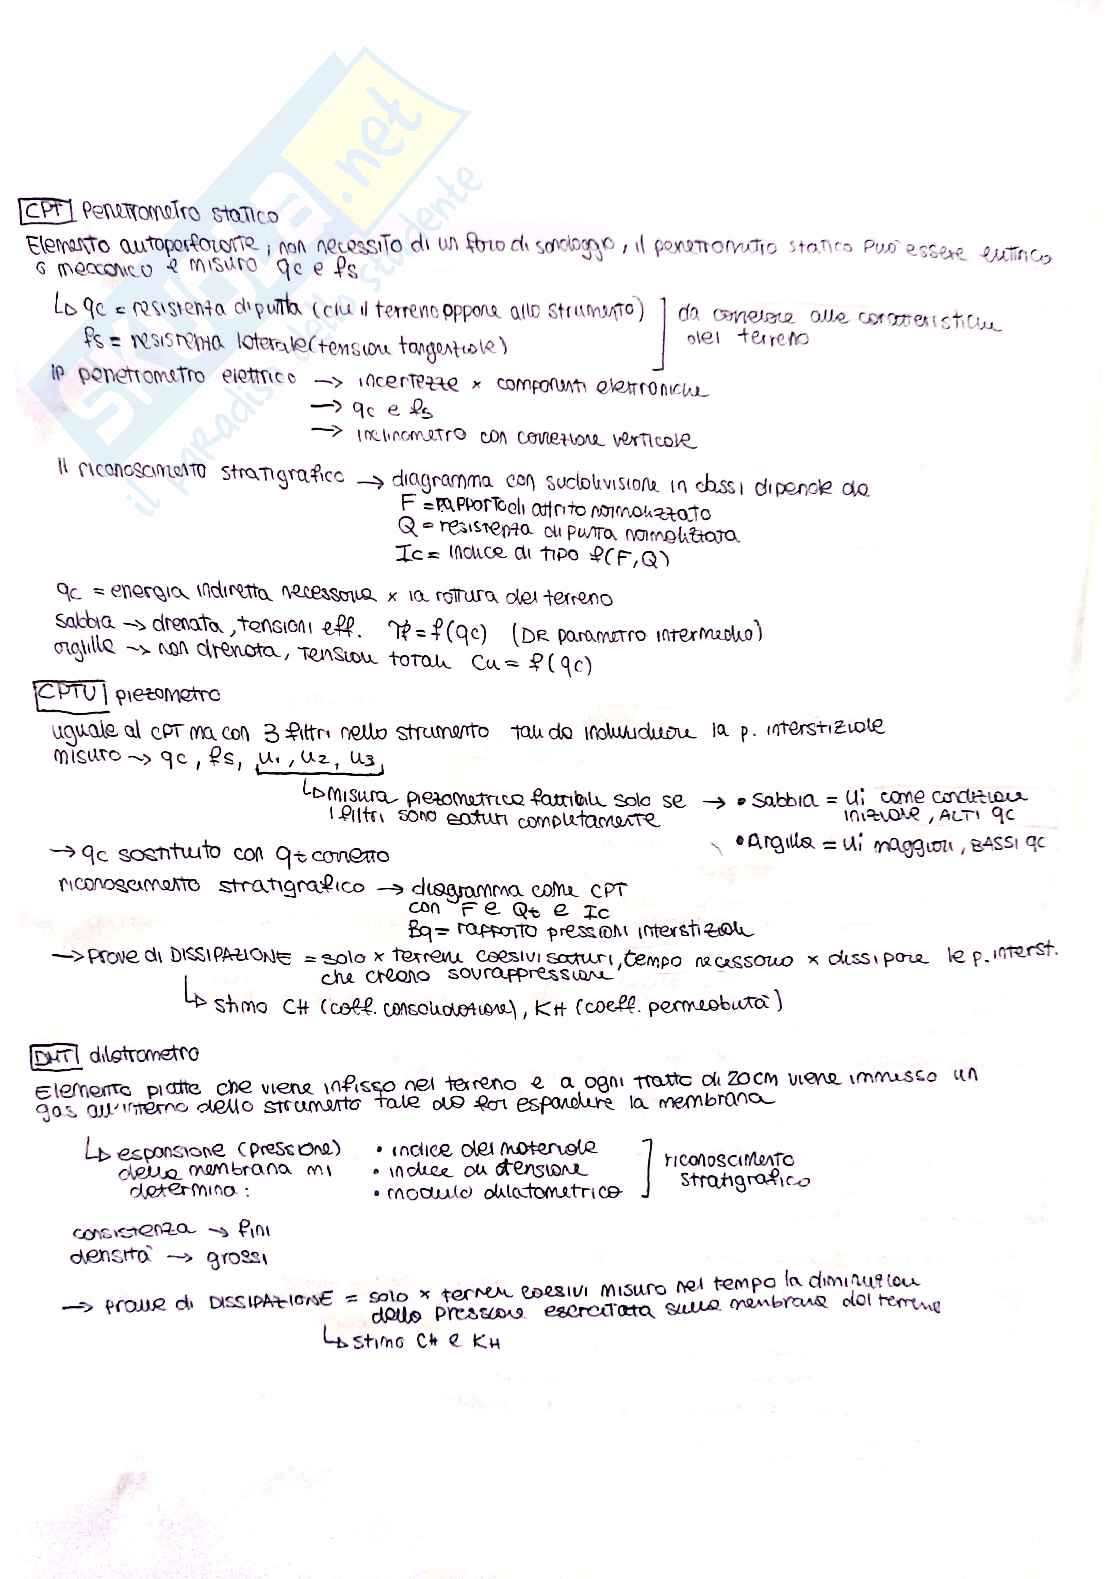 SKUOLA.net
il paradiso dello studente
CPT Penetrometro statico
Elemento autoperforante, non necessito di un foro di sondaggio, il penetrometro statico può essere elettrico
o meccanico e misuro qc e fs
↳ qc = resistenza di punta (che il terreno oppone allo strumento)
fs = resistenza laterale (tensioni tangenziale)
da correlare alle caratteristiche
del terreno
Il penetrometro elettrico → incertezze x componenti elettroniche
→ qc e fs
→ inclinometro con correzione verticale
Il riconoscimento stratigrafico → diagramma con suddivisione in classi dipende da
F = rapporto di attrito normalizzato
Q = resistenza di punta normalizzata
Ic = indice di tipo f(F,Q)
qc = energia indiretta necessaria x la rottura del terreno
sabbia → drenata, tensioni eff. = f(qc) (DR parametro intermedio)
argilla → non drenata, tensioni totali Cu = f(qc)
CPTU piezometro
uguale al CPT ma con 3 filtri nello strumento tali da individuare la p. interstiziale
misuro → qc, fs, u1, u2, u3
↳ misura piezometrica fattibile solo se
i filtri sono saturi completamente
→ • sabbia = ui come condizione
iniziale, ALTI qc
• Argilla = ui maggiori, BASSI qc
→ qc sostituito con qt corretto
riconoscimento stratigrafico → diagramma come CPT
con F e Qt e Ic
Bq = rapporto pressioni interstiziali
→ prove di DISSIPAZIONE = solo x terreni coesivi saturi, tempo necessario x dissipare le p. interst.
che creano sovrappressione
↳ stimo CH (coeff. consolidazione), KH (coeff. permeabilità)
DMT dilatometro
Elemento piatto che viene infisso nel terreno e a ogni tratto di 20 cm viene immesso un
gas all'interno dello strumento tale da far espandere la membrana
↳ espansione (pressione)
della membrana mi
determina:
• indice del materiale
• indice di tensione
• modulo dilatometrico
riconoscimento
stratigrafico
consistenza → fini
densità → grossi
→ prove di DISSIPAZIONE = solo x terreni coesivi misuro nel tempo la diminuzione
della pressione esercitata sulla membrana dal terreno
↳ stimo CH e KH